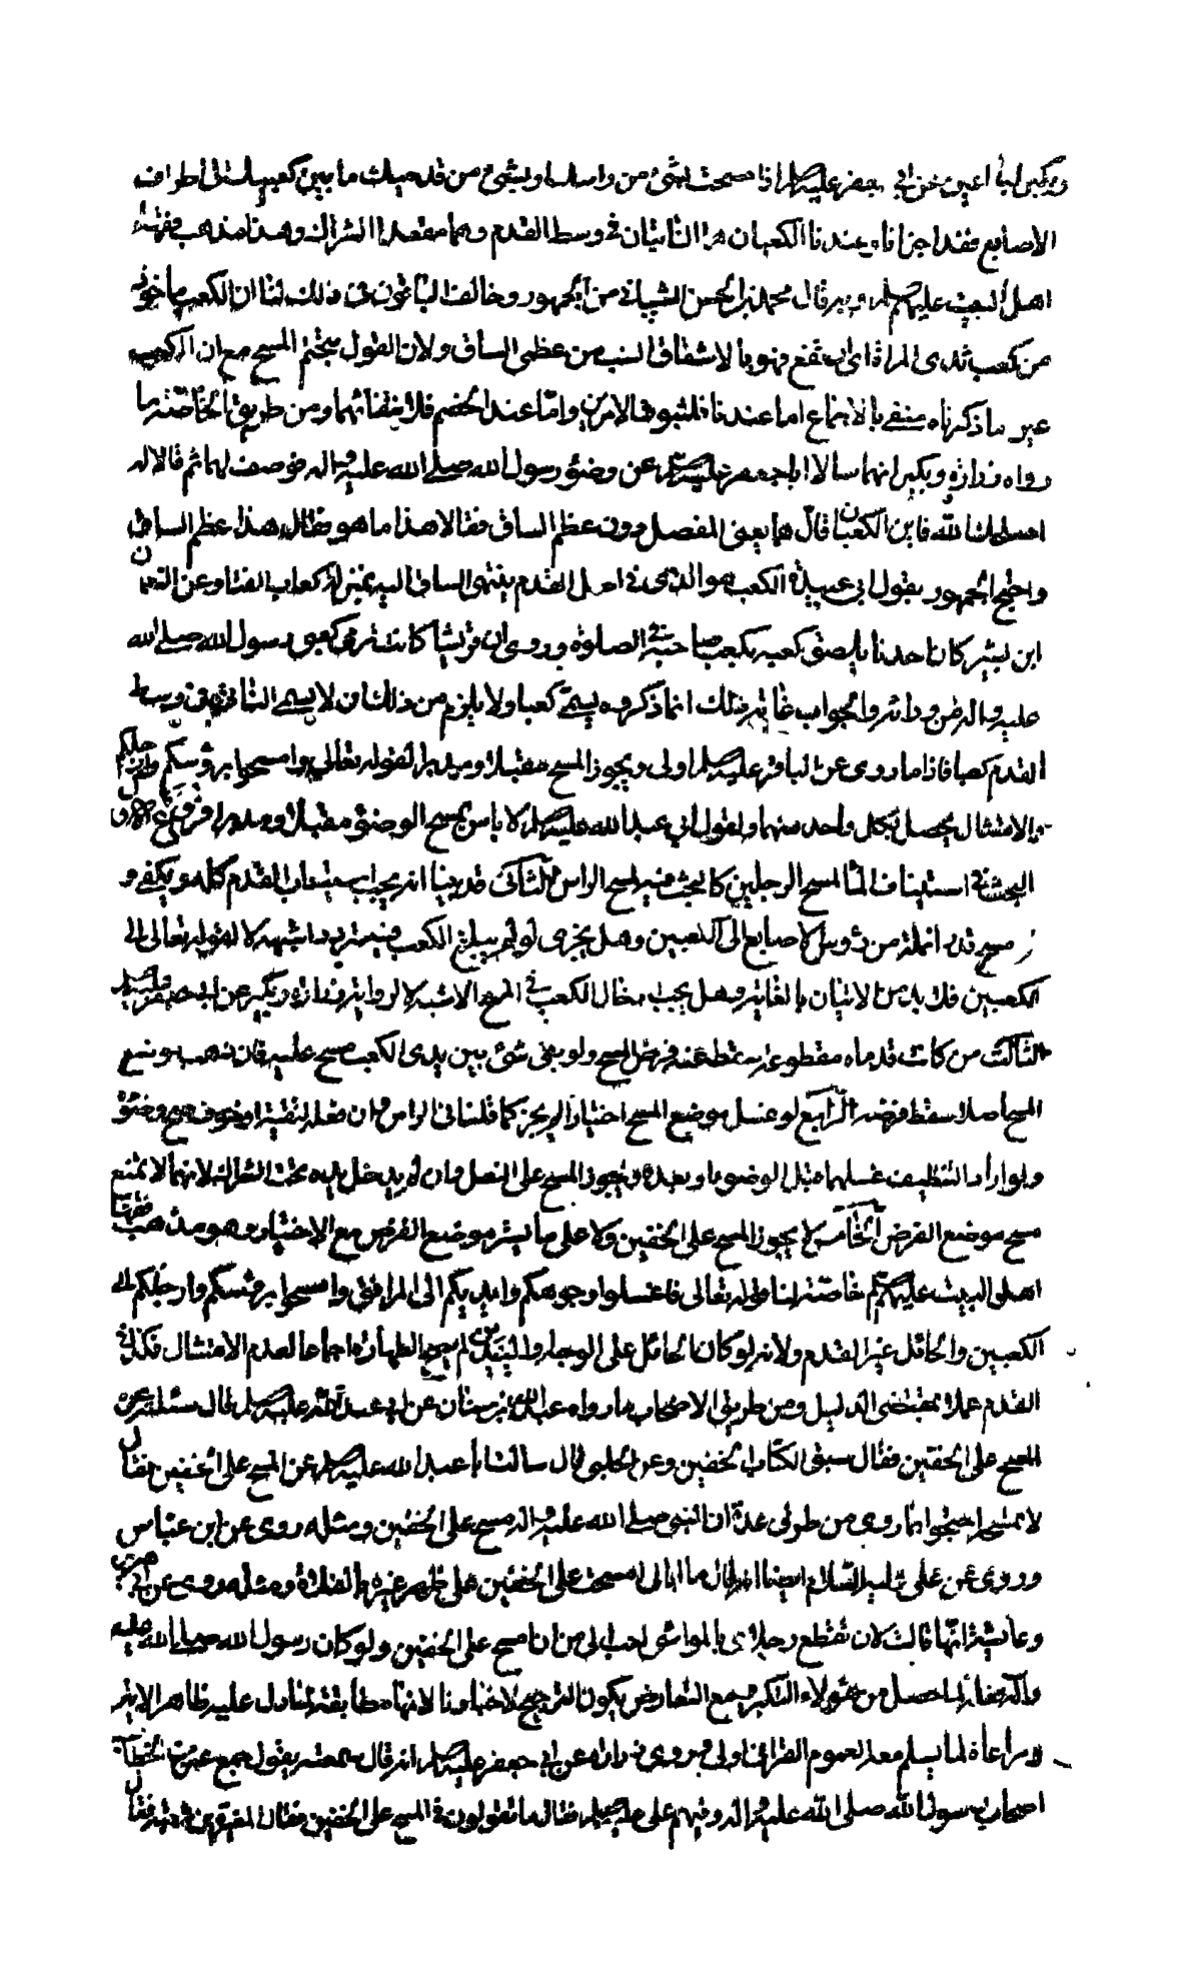 وبكير ابنا اعين عن ابي جعفر عليه السلام اذا مسحت بشئ من راسك او بشئ من قدميك ما بين كعبيك الى اطراف
الاصابع فقد اجزاك وعندنا الكعبان هما النابتان في وسط القدم وهما معقدا الشراك وهذا مذهب فقهاء
اهل البيت عليهم السلام وبه قال محمد بن الحسن الشيباني من الجمهور وخالف الباقون في ذلك لنا ان الكعب ماخوذ
من كعب ثدى المراة اى ارتفع فهو بالاشتقاق انسب من عظمى الساق ولان القول بتحتم المسح مع ان الكعب
غير ما ذكرناه منفى بالاجماع اما عندنا فلثبوت الامرين واما عند الخصم فلانتفائهما ومن طريق الخاصة ما
رواه زرارة وبكير انهما سالا ابا جعفر عليه السلام عن وضوء رسول الله صلى الله عليه واله فوصف لهما ثم قالا له
اصلحك الله فاين الكعبان قال هيهنا يعنى المفصل دون عظم الساق فقالا هذا ما هو فقال هذا عظم الساق
واحتج الجمهور بقول ابى عبيدة الكعب هو الذى في اصل القدم ينتهى الساق اليه بمنزلة كعاب القنا وعن النعمان
ابن بشير كان احدنا يلصق كعبه بكعب صاحبه في الصلوة وروى ان قريشا كانت ترمى كعبى رسول الله صلى الله
عليه واله من ورائه والجواب غاية ذلك ان ما ذكروه يسمى كعبا ولا يلزم من ذلك ان لا يسمى النابت في وسط
القدم كعبا فاذا ما روى عن الباقر عليه السلام اولى ويجوز المسح مقبلا ومدبرا لقوله تعالى وامسحوا برؤسكم وارجلكم
والامتثال يحصل بكل واحد منهما ولقول ابى عبد الله عليه السلام لا باس بمسح الوضوء مقبلا ومدبرا فروع
البحث في استيناف الماء لمسح الرجلين كالبحث فيه لمسح الراس الثانى قد بينا انه يجب استيعاب القدم كله ويكفى و
مسح قدر انملة من رؤوس الاصابع الى الكعبين وهل يجزى لو لم يبلغ الكعب فيه تردد اشبهه لا لقوله تعالى الى
الكعبين فلا بد من الاتيان بالغاية وهل يجب ادخال الكعب في المسح الاشبه لا لرواية زرارة وبكير عن ابى جعفر عليه السلام
الثالث من كانت قدماه مقطوعة سقط عنه فرض المسح ولو بقى شئ بين يدى الكعب مسح عليه فان ذهب موضع
المسح اصلا سقط فرضه الرابع لو غسل موضع المسح اختيارا لم يجز كما قلنا في الراس وان فعله لتقية او خوف صح وضوؤه
ولو اراد التنظيف غسلهما قبل الوضوء او بعده ويجوز المسح على النعل وان لم يدخل يده تحت الشراك لانهما لا تمنع
مسح موضع الفرض الخامس لا يجوز المسح على الخفين ولا على ما يستر موضع الفرض مع الاختيار وهو مذهب فقهاء
اهل البيت عليهم السلام خاصة لنا قوله تعالى فاغسلوا وجوهكم وايديكم الى المرافق وامسحوا برؤسكم وارجلكم الى
الكعبين والحائل غير القدم ولانه لو كان الحائل على الوجه او اليدين لم تصح الطهارة اجماعا لعدم الامتثال فكذا في
القدم عملا بمقتضى الدليل ومن طريق الاصحاب ما رواه عبد الله بن سنان عن ابى عبد الله عليه السلام قال سئلته عن
المسح على الخفين فقال سبق الكتاب الخفين وعن الحلبى قال سالت ابا عبد الله عليه السلام عن المسح على الخفين فقال
لا تمسح احتجوا بما روى من طرق عدة ان النبى صلى الله عليه واله مسح على الخفين ومثله روى عن ابن عباس
وروى عن على عليه السلام ايضا انه قال ما ابالى امسحت على الخفين ام على ظهر عير بالفلاة ومثله روى عن ابى هريرة
وعايشة انها قالت لان تقطع رجلاى بالمواسى احب الى من ان امسح على الخفين ولو كان رسول الله صلى الله عليه
واله فعله لما حصل من هؤلاء النكير ومع التعارض يكون الترجيح لاخبارنا لانها مطابقة لما دل عليه ظاهر الاية
ومراعاة لما يسلم معه العموم القرانى اولى وروى زرارة عن ابى جعفر عليه السلام انه قال سمعته يقول جمع عمر بن الخطاب
اصحاب رسول الله صلى الله عليه واله وفيهم على عليه السلام فقال ما تقولون في المسح على الخفين فقام المغيرة بن شعبة فقال